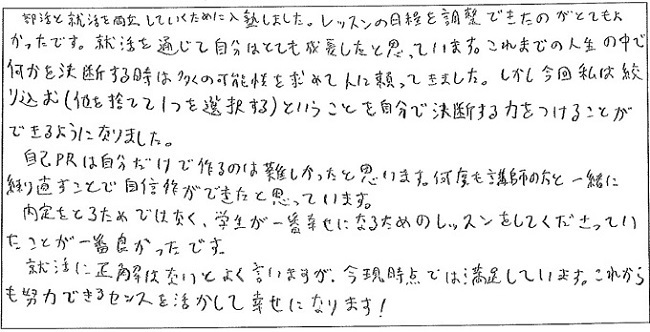 部活と就活を両立していくために入塾しました。レッスンの日程を調整できたのがとてもよ
かったです。就活を通じて自分はとても成長したと思っています。これまでの人生の中で
何かを決断する時は多くの可能性を求めて人に頼ってきました。しかし今回私は絞
り込む(他を捨てて1つを選択する)ということを自分で決断する力をつけることが
できるようになりました。
自己PRは自分だけで作るのは難しかったと思います。何度も講師の方と一緒に
練り直すことで自信作ができたと思っています。
内定をとるためではなく、学生が一番幸せになるためのレッスンをしてくださってい
たことが一番良かったです。
就活に正解はないとよく言いますが、今現時点では満足しています。これから
も努力できるセンスを活かして幸せになります!